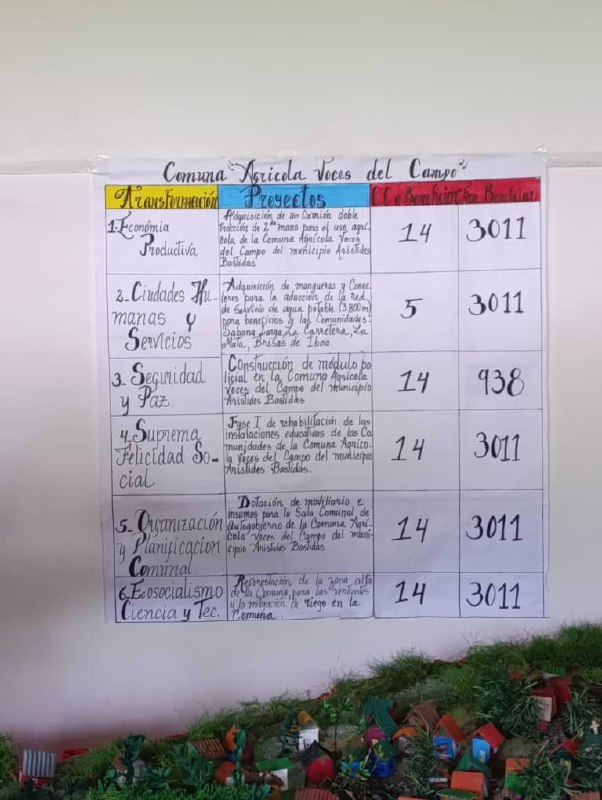 Comuna "Agricola Voces del Campo"
Transformación Proyectos C.C o Beneficiar Fam. Beneficiar
1. Económia
Productiva
Adquisición de un Camión doble
tracción de 2da mano para el uso agrí
cola de la Comuna Agrícola Voces
del Campo del municipio Aristides
Bastidas
14 3011
2. Ciudades Hu
manas y
Servicios
Adquisición de mangueras y Conec
tores para la aducción de la red
de Servicio de agua potable (3.800m)
para beneficios a las Comunidades:
Sabana Larga, La Carretera, La
Mata, Brisas de Iboa.
5 3011
3. Seguridad
y Paz.
Construcción de módulo po
licial en la Comuna Agrícola
Voces del Campo del municipio
Aristides Bastidas
14 938
4. Suprema
Felicidad So-
cial
Fase I de rehabilitación de las
instalaciones educativas de las Co
munidades de la Comuna Agríco-
la Voces del Campo del municipio
Aristides Bastidas.
14 3011
5. Organización
y Planificacion
Comunal
Dotación de moviliario e
insumos para la Sala Comunal, de
autogobierno de la Comuna Agrí-
cola Voces del Campo del muni-
cipio Aristides Bastidas
14 3011
6. Ecosocialismo
Ciencia y Tec.
Reforestación de la zona alta
de la Comuna, para las vertientes
y la mitigación de riego en la
Comuna.
14 3011